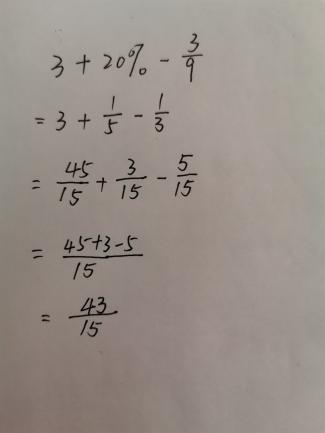 3 + 20% - 3/9
= 3 + 1/5 - 1/3
= 45/15 + 3/15 - 5/15
= 45+3-5/15
= 43/15